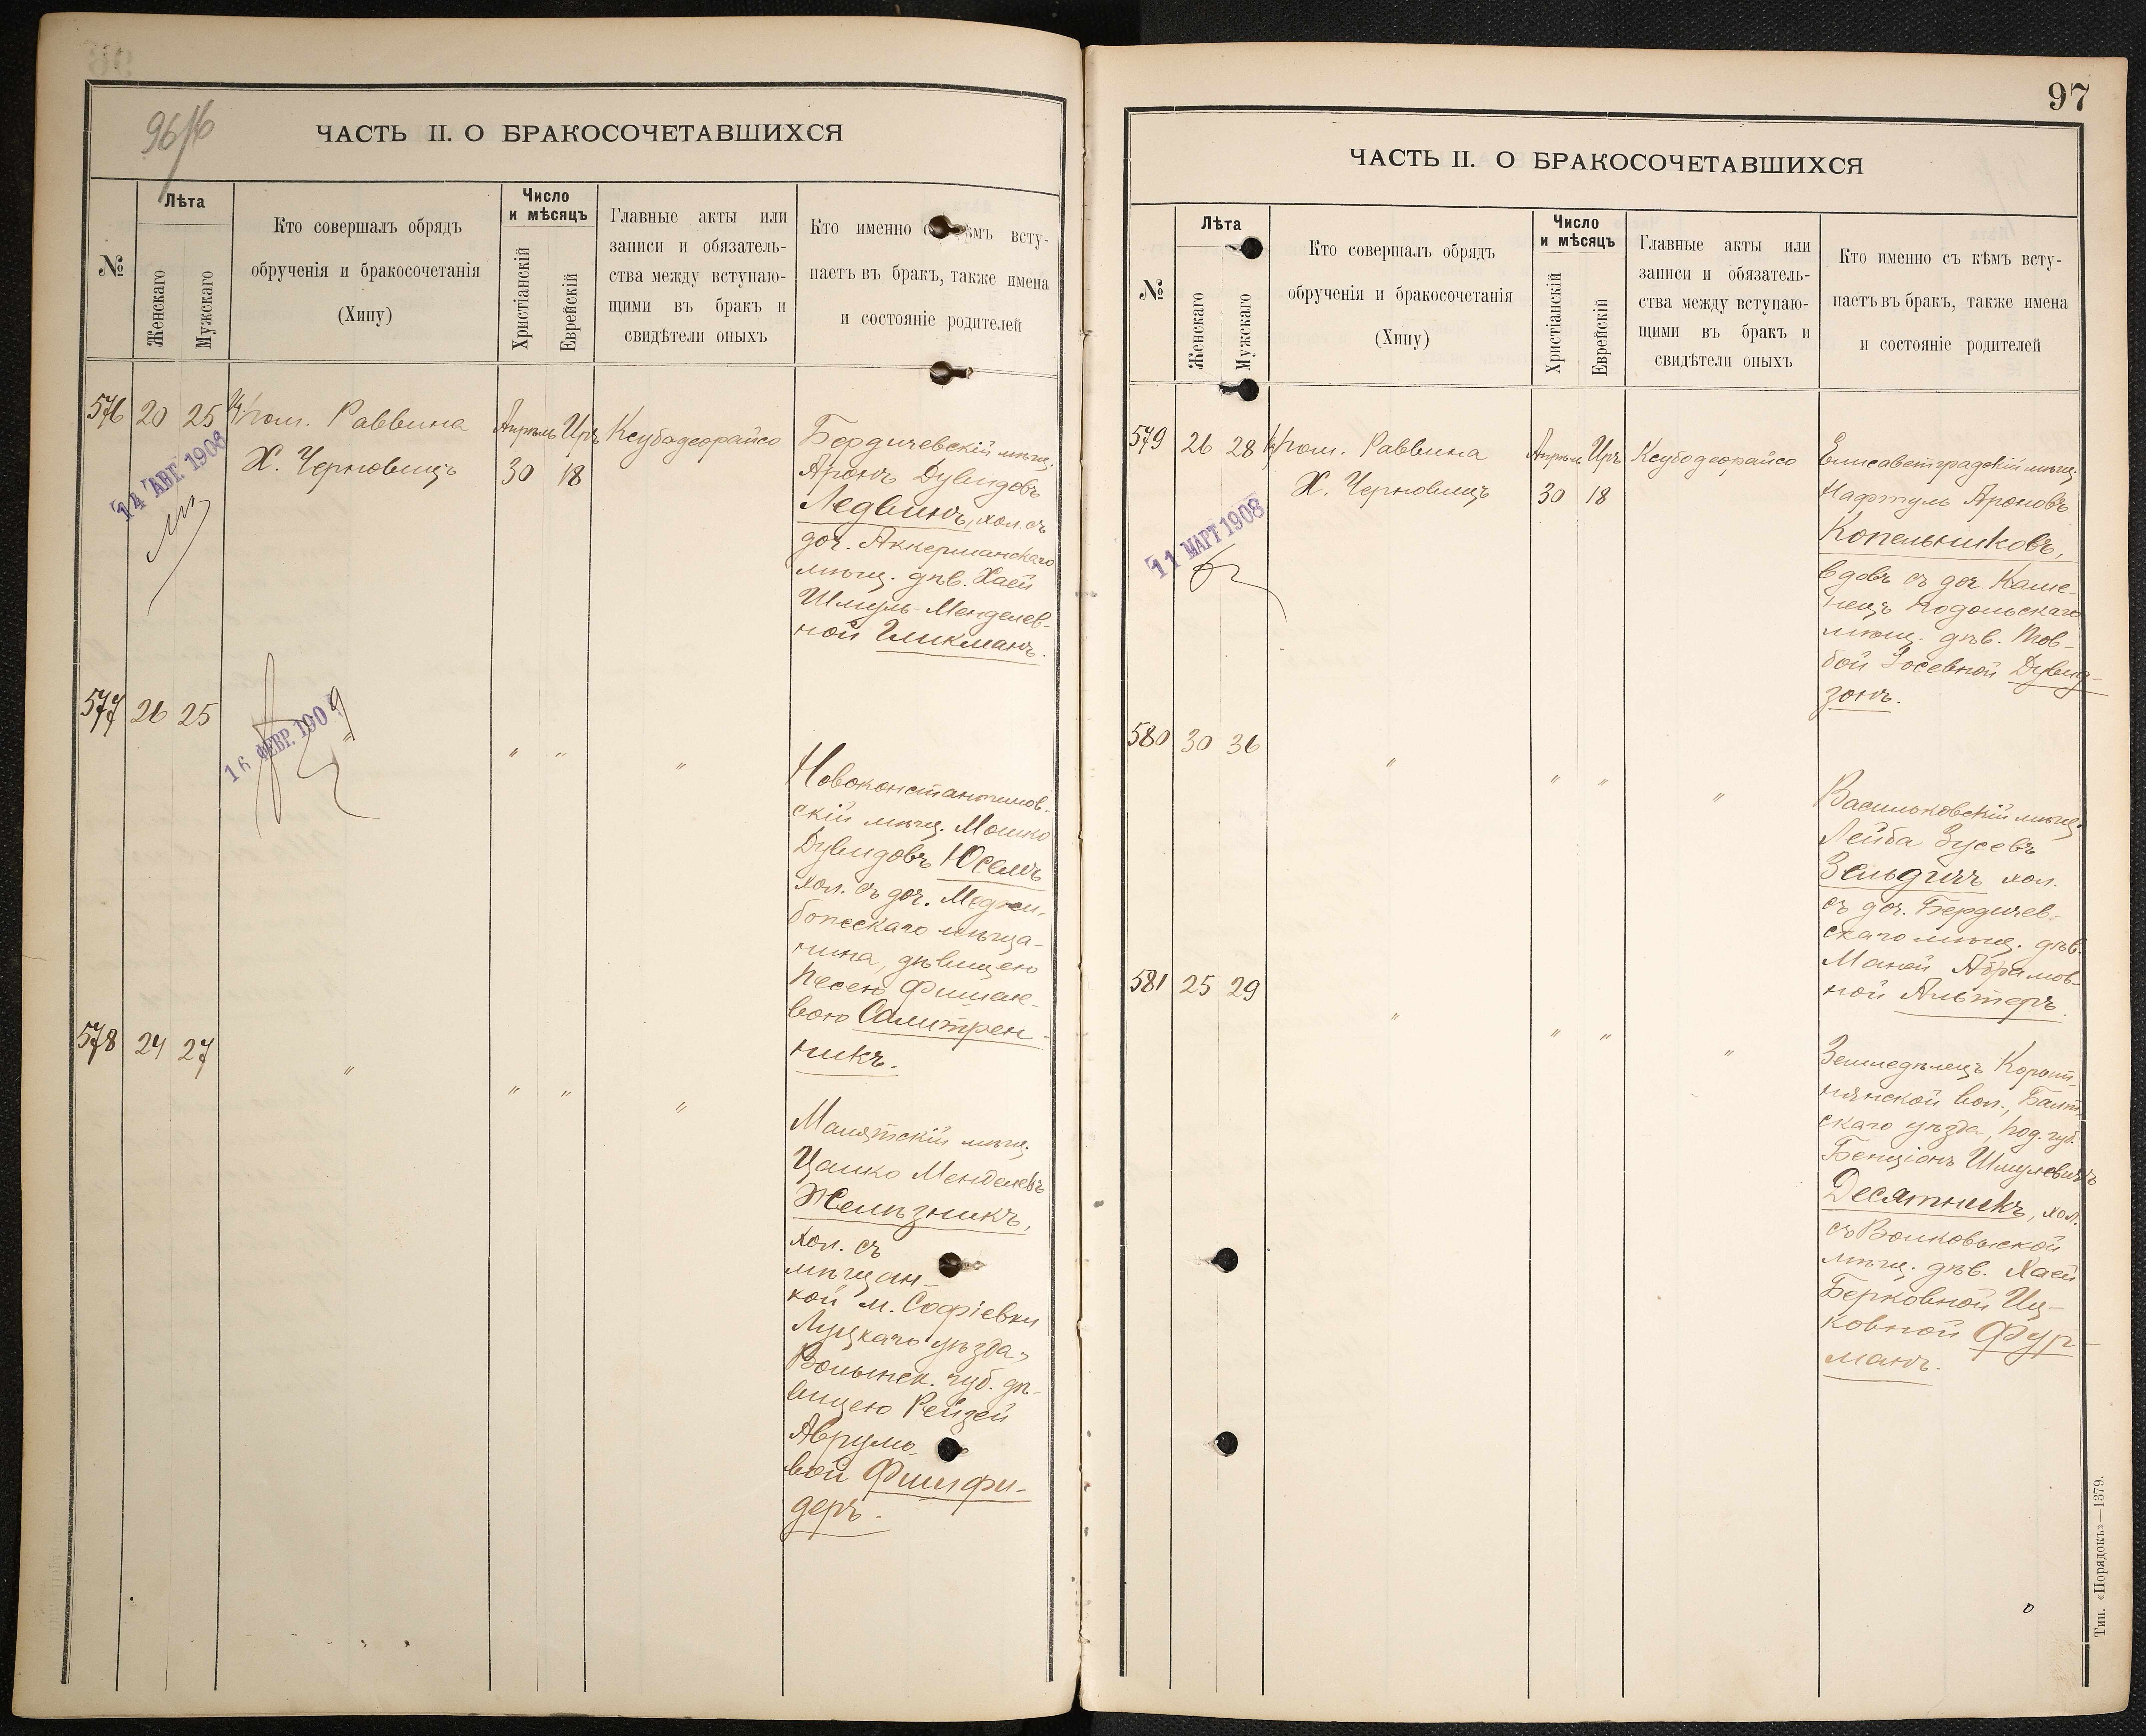 96/б
ЧАСТЬ II. О БРАКОСОЧЕТАВШИХСЯ
№
Лѣта
Женскаго
Мужскаго
Кто совершалъ обрядъ
обрученія и бракосочетанія
(Хипу)
Число
и мѣсяцъ
Христіанскій
Еврейскій
Главные акты или
записи и обязатель-
ства между вступаю-
щими въ бракъ и
свидѣтели оныхъ
Кто именно съ кѣмъ всту-
паетъ въ бракъ, также имена
и состояніе родителей
576 20 25
пом. Раввина
Х. Черновицъ
Апрѣль Иръ
30 18
Ксубодеорайсо
14 АВГ. 1908
Бердичевскій мѣщ.
Аронъ Дувидовъ
Ледвинъ, хол. съ
доч. Аккерманскаго
мѣщ. дѣв. Хаей
Шмуль-Менделев-
ной Гликманъ.
577 26 25
16 ФЕВР. 1909
" " " "
Новоконстантинов-
скій мѣщ. Мошко
Дувидовъ Юсемъ
хол. съ доч. Меджи-
божскаго мѣща-
нина, дѣвицею
Песею Фишле-
вою Салитрен-
никъ.
578 24 27
" " " "
Маяцкій мѣщ.
Цалко Менделевъ
Желѣзникъ,
хол. съ
мѣщан-
кой м. Софіевки
Луцкаго уѣзда,
Волынск. губ. дѣ-
вицею Рейзей
Аврумо-
вой Фишфи-
деръ.
97
ЧАСТЬ II. О БРАКОСОЧЕТАВШИХСЯ
№
Лѣта
Женскаго
Мужскаго
Кто совершалъ обрядъ
обрученія и бракосочетанія
(Хипу)
Число
и мѣсяцъ
Христіанскій
Еврейскій
Главные акты или
записи и обязатель-
ства между вступаю-
щими въ бракъ и
свидѣтели оныхъ
Кто именно съ кѣмъ всту-
паетъ въ бракъ, также имена
и состояніе родителей
579 26 28
пом. Раввина
Х. Черновицъ
Апрѣль Иръ
30 18
Ксубодеорайсо
11 МАРТ 1908
Елисаветградскій мѣщ.
Нафтуль Ароновъ
Копельниковъ,
вдовъ съ доч. Каме-
нецъ Подольскаго
мѣщ. дѣв. Тов-
бой Іосевной Дувид-
зонъ.
580 30 36
" " " "
Васильковскій мѣщ.
Лейба Зусевъ
Зельдичъ хол.
съ доч. Бердичев-
скаго мѣщ. дѣв.
Маней Абрамов-
ной Альтеръ.
581 25 29
" " " "
Земледѣлецъ Корыт-
нянской вол., Балт-
скаго уѣзда, Под. губ.
Бенціонъ Шмулевичъ
Десятникъ, хол.
съ Волковыской
мѣщ. дѣв. Хаей
Берковной Иц-
ковной Фур-
манъ.
Тип. «Порядокъ»—1379.